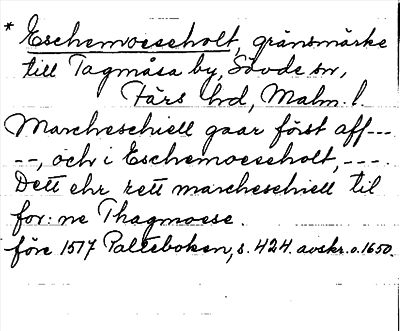 * Eschemoeseholt, gränsmärke
till Tagmåsa by, Sövde sn,
Färs hd, Malm. l.
Marcheschiell gaar först aff---
--, och i Eschemoeseholt, ---.
Dett ehr rett marcheschiell til
for:ne Thagmoesse.
före 1517 Palteboken, s. 424. avskr. o. 1650.